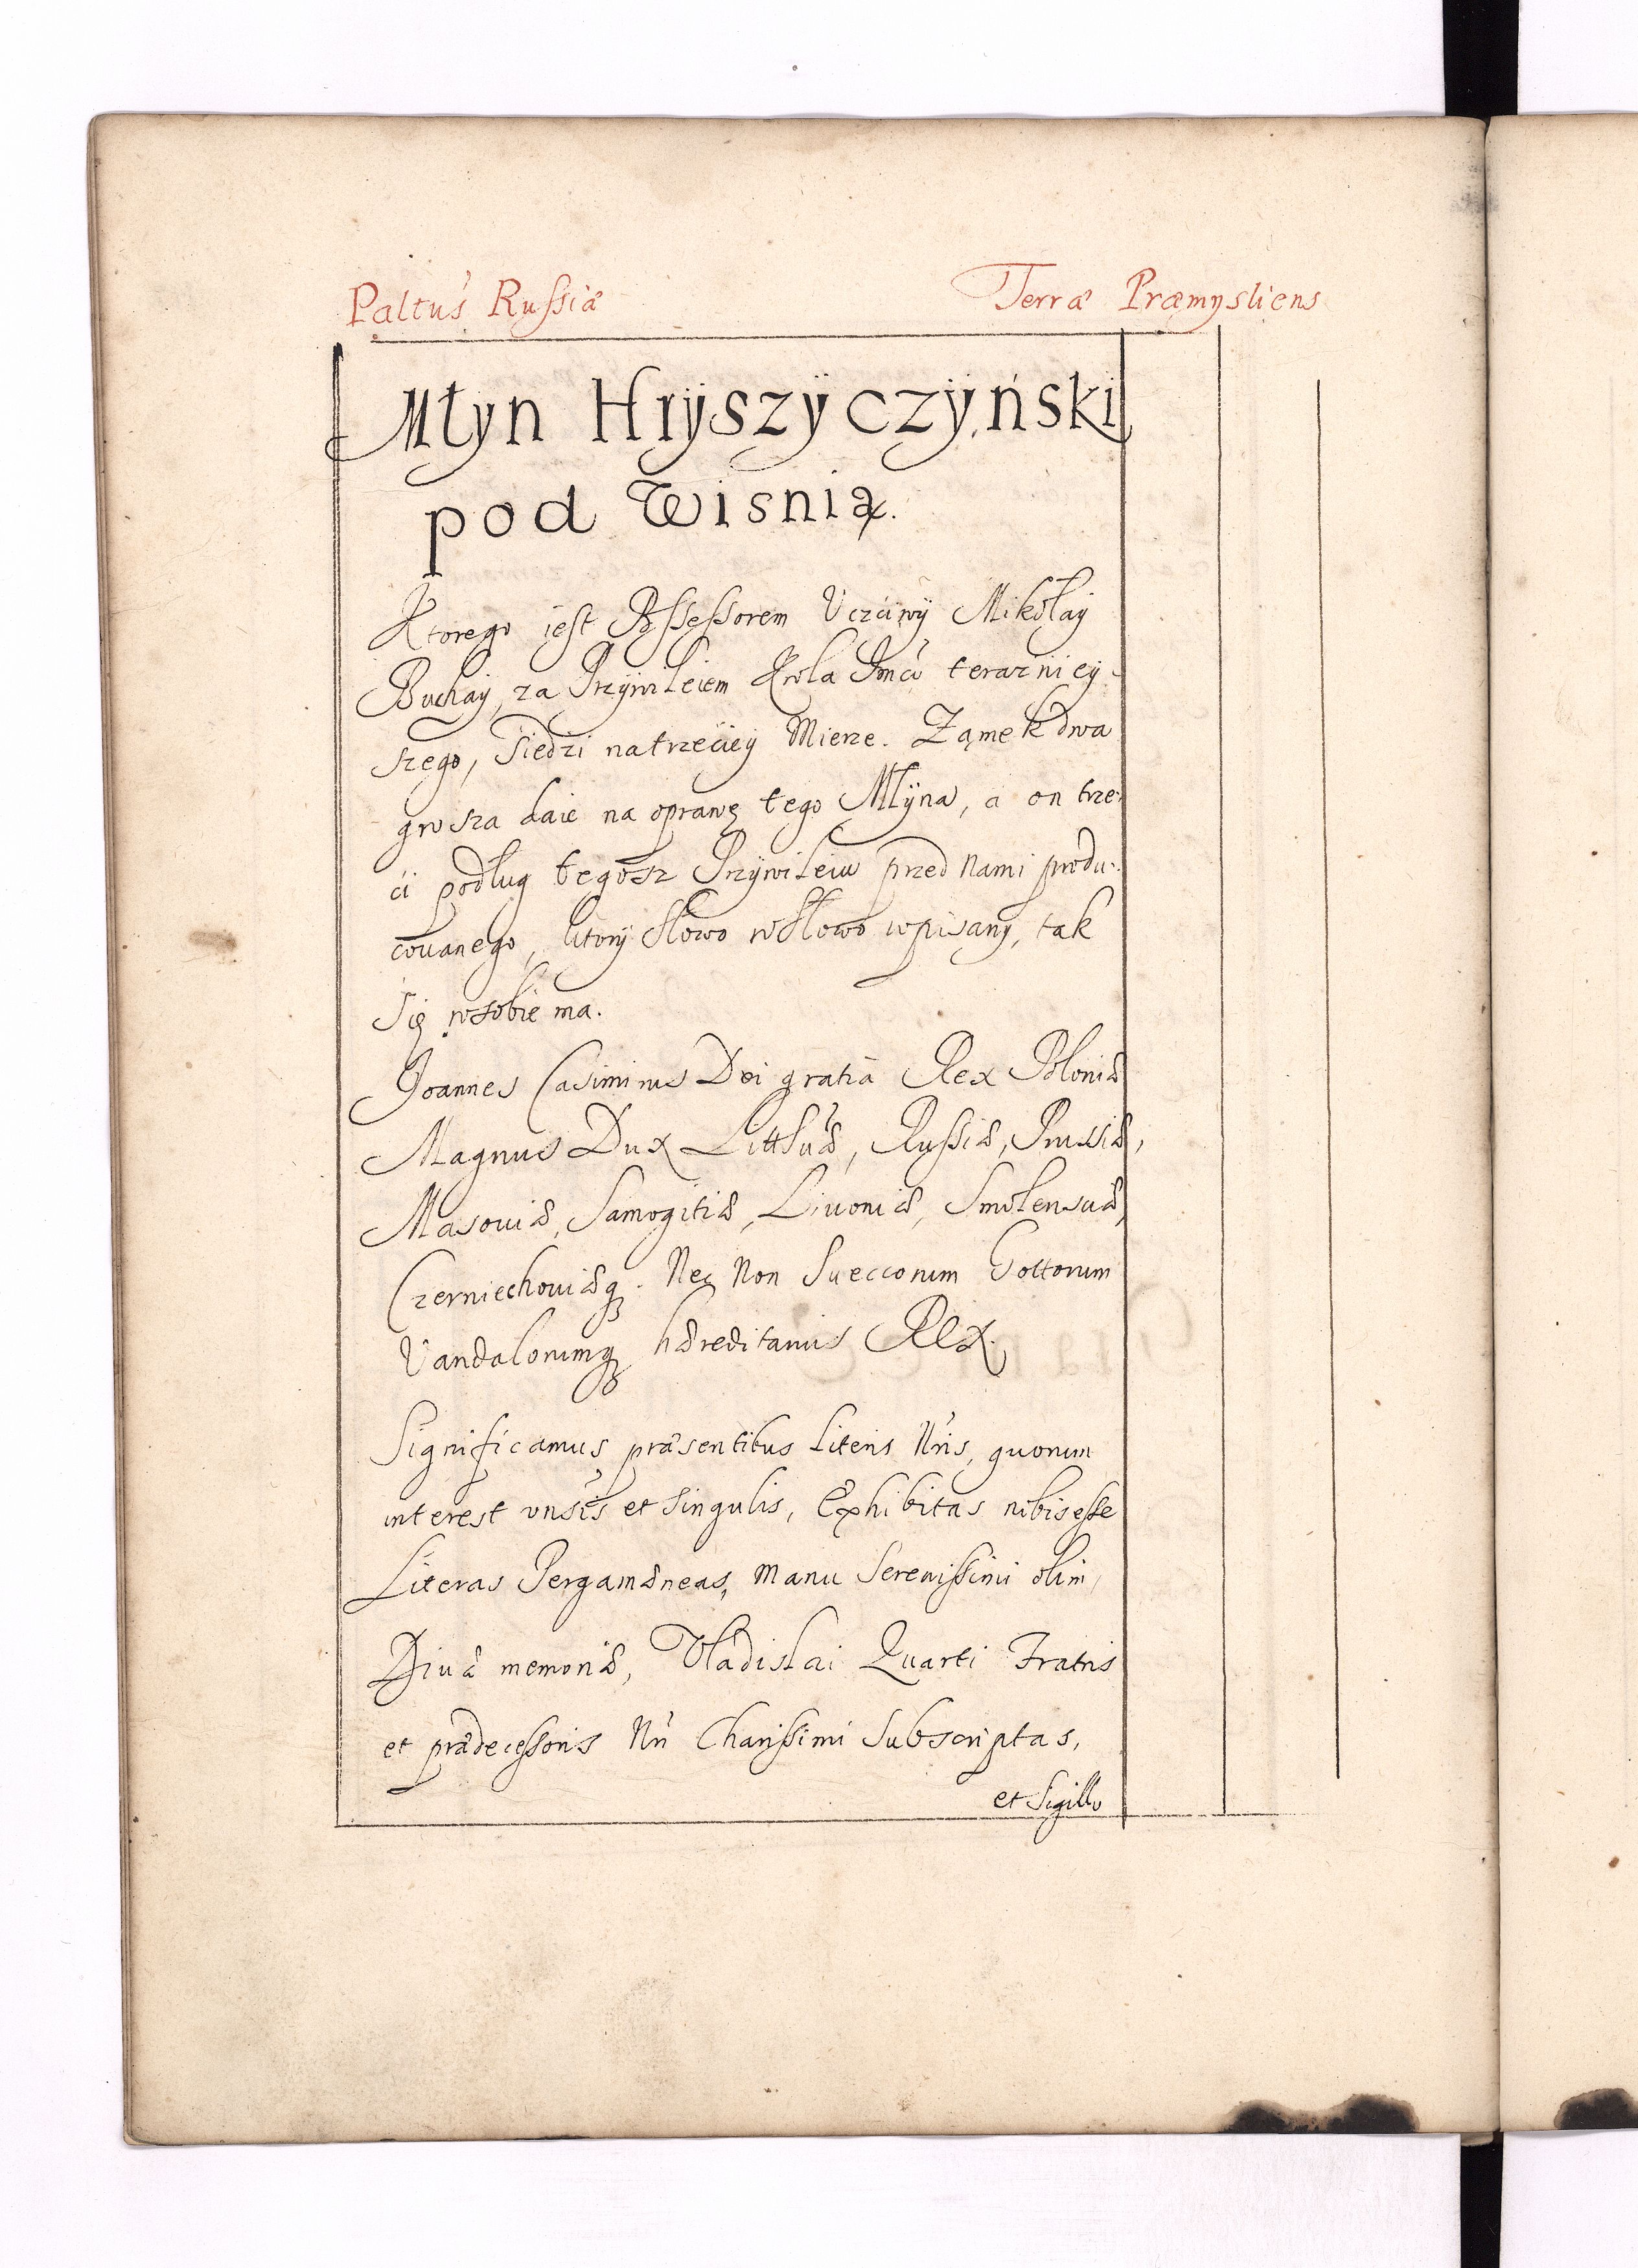 Paltus Russiæ Terræ Præmysliens
Młyn Hrÿszÿczÿński
pod Wisnią.
Ktorego iest Possessorem Vczciwÿ Mikołaÿ
Buchaÿ, za Prziwileiem Krola Jmci terazniey
szego, Siedzi na trzeciey Mierze. Zamek dwa
grosza daie na oprawę tego Młÿna, a on trze:
ci podług tegosz Prziwileiu przed nami produ:
cowanego, ktorÿ słowo wsłowo wpisany, tak
się wsobie ma.
Joannes Casimirus Dei gratia Rex Poloniæ
Magnus Dux Litthuæ, Russiæ, Prussiæ,
Masouiæ, Samogitiæ, Liuoniæ, Smolensciæ,
Czerniechouiæq. Nec Non Suecorum Gottorum
Vandalorumq hæreditarius Rex.
Significamus præsentibus Literis Nris, quorum
interest vnsis et singulis, Exhibitas nobis esse
Literas Pergamæneas, Manu Serenissimi olim,
Diuæ memoriæ, Vladislai Quarti Fratris
et prædecessoris Nri Charissimi Subscriptas,
et Sigillo